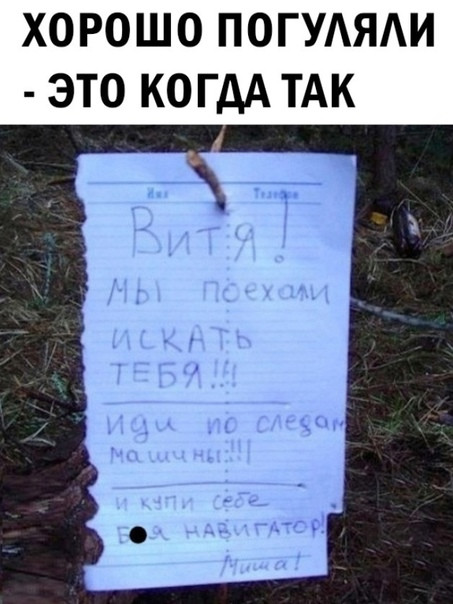 ХОРОШО ПОГУЛЯЛИ
- ЭТО КОГДА ТАК
Имя Телефон
Витя!
МЫ поехали
ИСКАТЬ
ТЕБЯ!!!
Иди по следам
Машины!!!
и купи себе
Б●я НАВИГАТОР!
Миша!